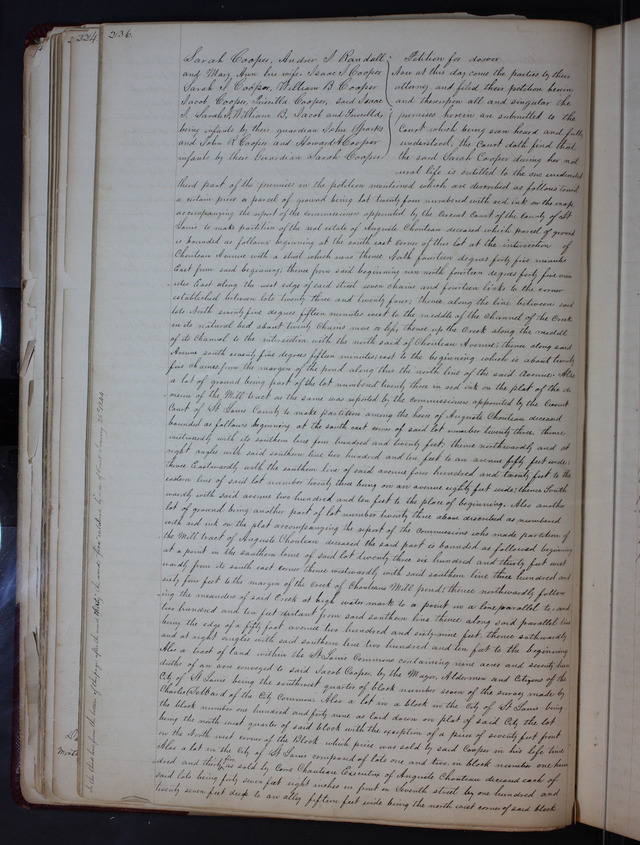 224 236.
Sarah Cooper, Andrew J Randall
and Mary Ann his wife, Isaac J Cooper
Sarah J Cooper, William B Cooper
Jacob Cooper, Priscilla Cooper, said Isaac
J. Sarah J, William B, Jacob and Priscilla,
being infants by their guardian John Sparks
and John R Cooper and Howard A Cooper
infants by their Guardian Sarah Cooper
Petition for dower
Now at this day come the parties by their
attorney and filed their petition herein
and thereupon all and singular the
premises herein are submitted to the
Court which being seen heard and fully
understood, the Court doth find that
the said Sarah Cooper during her nat
ural life is entitled to the one undivided
third part of the premises in the petition mentioned which are described as follows towit
a certain piece or parcel of ground being lot twenty four numbered with red ink on the map
accompanying the report of the commissioners appointed by the Circuit Court of the County of St
Louis to make partition of the real estate of Auguste Chouteau deceased which parcel of ground
is bounded as follows beginning at the south east corner of this lot at the intersection of
Chouteau Avenue with a street which runs thence North fourteen degrees forty five minutes
East from said beginning; thence from said beginning run north fourteen degrees forty five min
utes East along the west edge of said street seven chains and fourteen links to the corner
established between lots twenty three and twenty four; thence along the line between said
lots North seventy five degrees fifteen minutes west to the middle of the channel of the Creek
in its natural bed about twenty chains more or less; thence up the Creek along the middle
of its channel to the intersection with the north said of Chouteau Avenue; thence along said
Avenue south seventy five degrees fifteen minutes east to the beginning which is about twenty
five chains from the margin of the pond along that the north line of the said Avenue. Also
a lot of ground being part of the lot numbered twenty three in red ink on the plat of the di
vision of the Mill tract as the same was reported by the commissioners appointed by the Circuit
Court of St Louis County to make partition among the heirs of Auguste Chouteau deceased
bounded as follows beginning at the south east corner of said lot number twenty three thence
westwardly with its southern line four hundred and twenty feet; thence northwardly and at
right angles with said southern line two hundred and ten feet to an avenue fifty feet wide;
thence Eastwardly with the southern line of said avenue four hundred and twenty feet to the
eastern line of said lot number twenty three being on an avenue eighty feet wide; thence South
wardly with said avenue two hundred and ten feet to the place of beginning. Also another
lot of ground being another part of lot number twenty three above described as numbered
with red ink on the plat accompanying the report of the commissioners who made partition of
the Mill tract of Auguste Chouteau deceased the said part is bounded as followed beginning
at a point in the southern line of said lot twenty three six hundred and thirty feet west
wardly from its south east corner thence westwardly with said southern line three hundred and
sixty four feet to the margin of the Creek of Chouteaus Mill pond; thence northwardly follow
ing the meanders of said Creek at high water mark to a point in a line parallel to and
two hundred and ten feet distant from said southern line thence along said parallel line
being the edge of a fifty foot avenue two hundred and sixty nine feet. thence southwardly
and at right angles with said southern line two hundred and ten feet to the beginning
Also a tract of land within the St Louis Commons containing nine acres and seventy hun
dredths of an acre conveyed to said Jacob Cooper, by the Mayor, Aldermen and Citizens of the
City of St Louis being the southwest quarter of block number seven of the survey made by
Charles DeWard of the City Commons Also a lot in a block in the City of St Louis being
the block number one hundred and forty nine as laid down on plat of said City the lot
being the north west quarter of said block with the exception of a piece of seventy feet front
on the North west corner of the Block which piece was sold by said Cooper in his life time
Also a lot in the City of St Louis composed of lots one and two in block number one hun
dred and thirty five as sold by Come Chouteau Executrix of Auguste Chouteau deceased each of
said lots being forty seven feet eight inches in front on Seventh street by one hundred and
twenty seven feet deep to an alley fifteen feet wide being the north west corner of said block